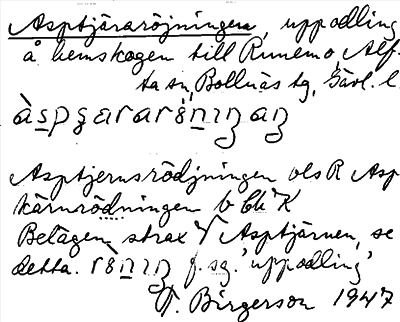 Asptjäraröjningen, uppodling
å hemskogen till Runemo, Alf-
ta sn, Bollnäs tg, Gävl. l.
Asptjernsrödjningen ols R Asp
kärnrödningen b bli K
Belägen strax V Asptjärnen, se
detta. f. sg. 'uppodling'
T. Birgerson 1947